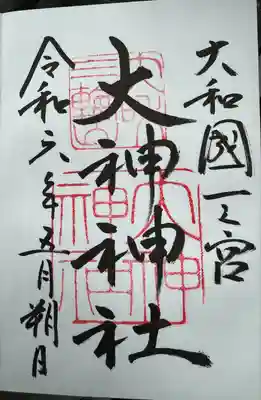 大和國一之宮
大神神社
令和六年五月朔日